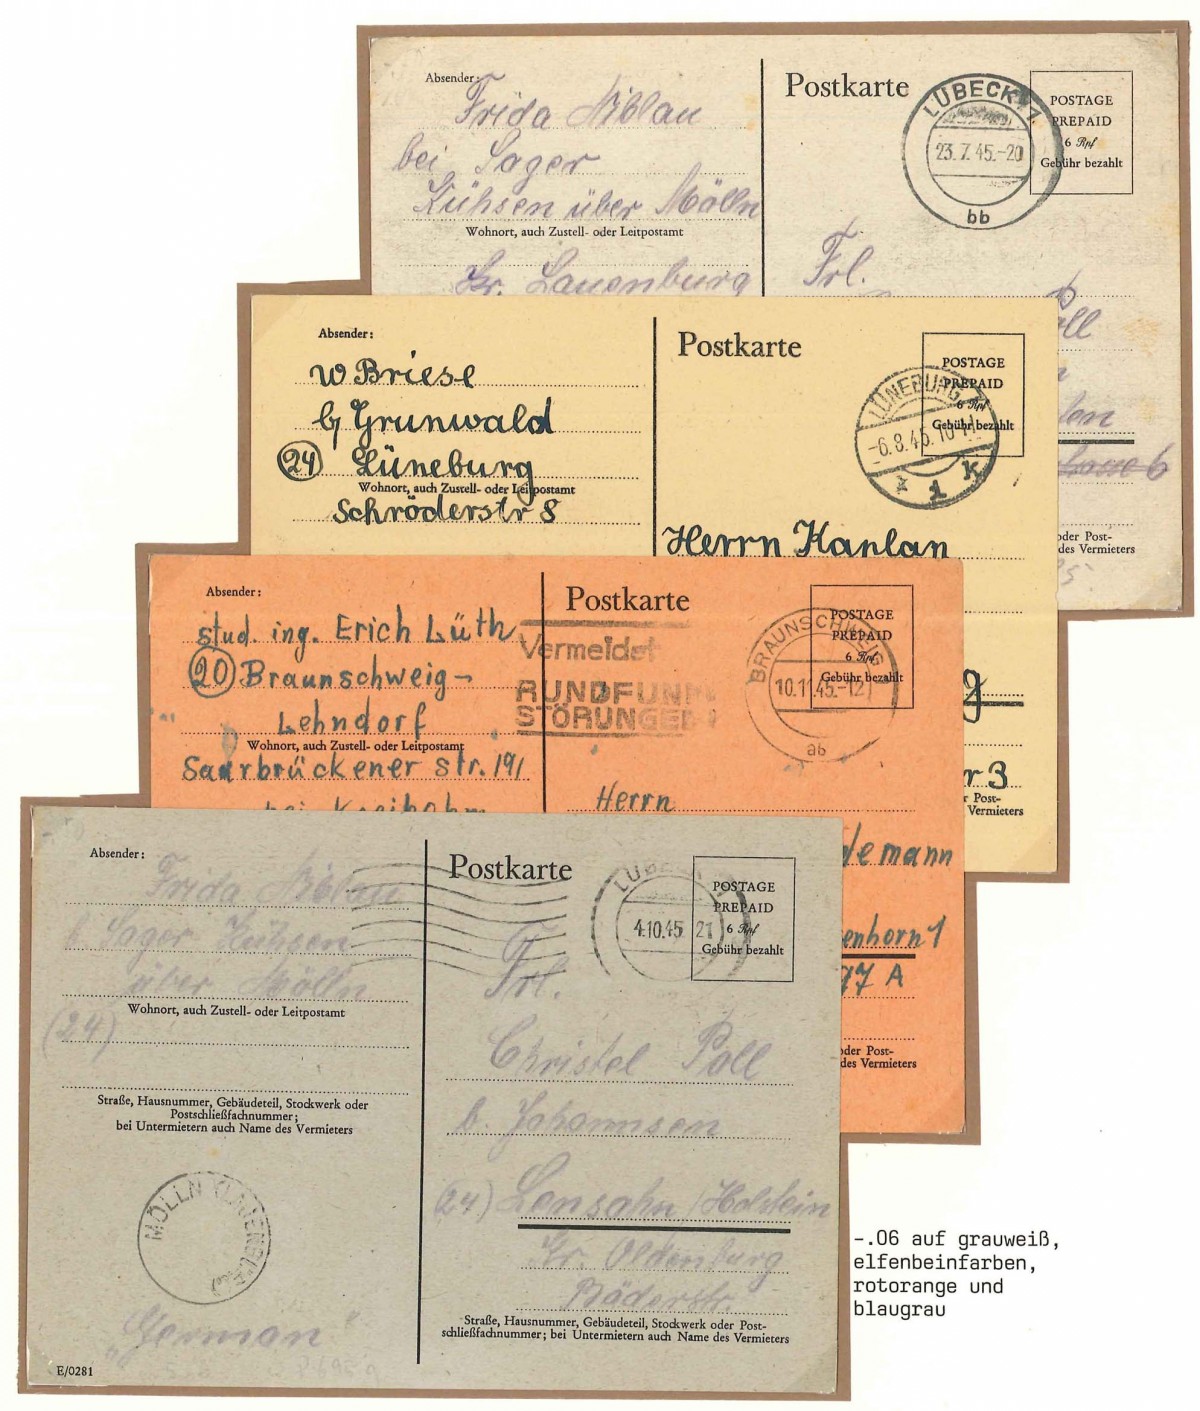 Absender:
Frida Niblau
bei Sager
Kühsen über Mölln
Wohnort, auch Zustell- oder Leitpostamt
Kr. Lauenburg
Postkarte
LÜBECK 1
23.7.45.-20
bb
POSTAGE
PREPAID
6 Rpf
Gebühr bezahlt
Frl.
oll
den
oder Post-
des Vermieters
Absender:
W Briese
b/ Grunwald
(24) Lüneburg
Wohnort, auch Zustell- oder Leitpostamt
Schröderstr 8
Postkarte
LÜNEBURG
-6.8.45.10-11
1 k
POSTAGE
PREPAID
6 Rpf
Gebühr bezahlt
Herrn Kaplan
g
r 3
r Post-
Vermieters
Absender:
stud. ing. Erich Lüth
(20) Braunschweig-
Lehndorf
Wohnort, auch Zustell- oder Leitpostamt
Saarbrückener str. 191
Postkarte
Vermeidet
RUNDFUNK
STÖRUNGEN
BRAUNSCHWEIG
10.11.45.-12
ab
POSTAGE
PREPAID
6 Rpf
Gebühr bezahlt
Herrn
demann
enhorn 1
97 A
oder Post-
des Vermieters
Absender:
Frida Niblau
b. Sager Kühsen
über Mölln
Wohnort, auch Zustell- oder Leitpostamt
(24)
Straße, Hausnummer, Gebäudeteil, Stockwerk oder
Postschließfachnummer;
bei Untermietern auch Name des Vermieters
MÖLLN (LAUENB)
"German"
E/0281
Postkarte
LÜBECK
4.10.45 21
POSTAGE
PREPAID
6 Rpf
Gebühr bezahlt
Frl.
Christel Poll
b. Johannsen
(24) Lensahn/Holstein
Kr. Oldenburg
Bäderstr.
Straße, Hausnummer, Gebäudeteil, Stockwerk oder Post-
schließfachnummer; bei Untermietern auch Name des Vermieters
-.06 auf grauweiß,
elfenbeinfarben,
rotorange und
blaugrau